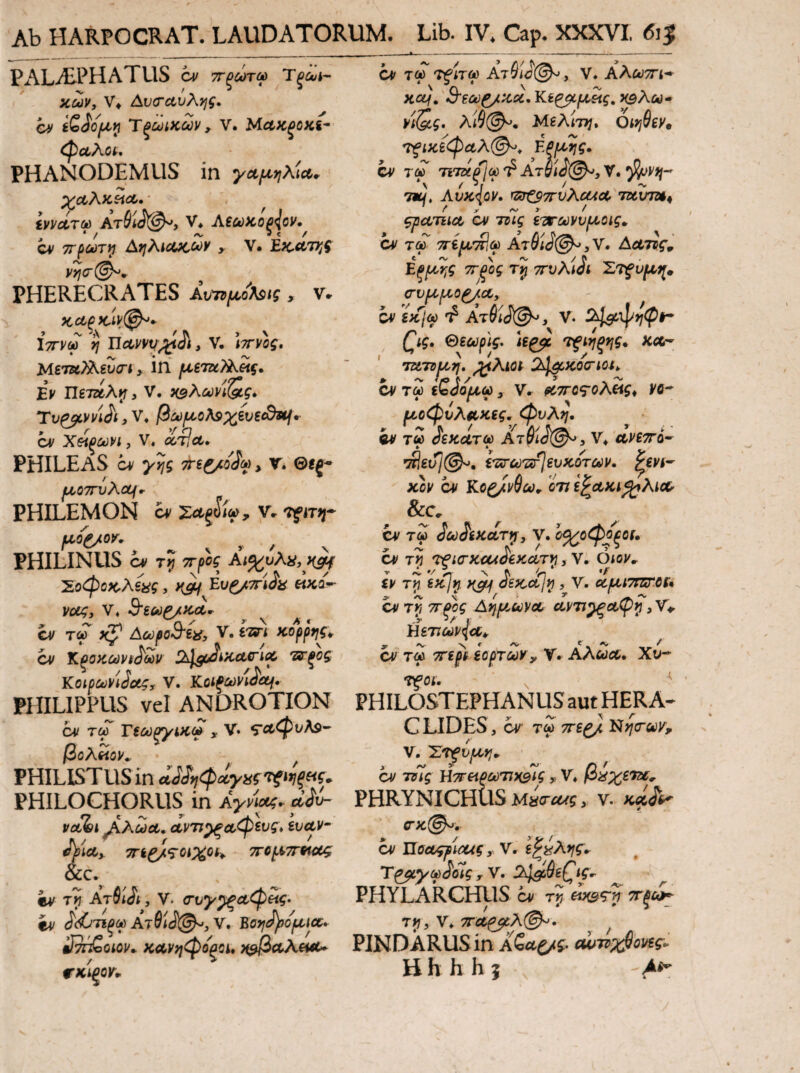 Ab HARPOCRAT. LAUDATORUM. Lib. IV. Cap. XXXVI. 615
PALÆPHATUS ἐν πρώτῳ Τρωι-
κῶν, V. Δυσαύλης.
ἐν ἑβδόμῃ Τρωικῶν, V. Μακροκέ-
φαλοι.
PHANODEMUS in γαμηλία.
χαλκεῖα.
ἐννάτῳ Ἀτθίδος, V. Λεωκόριον.
ἐν πρώτῃ Δηλιακῶν, V. Ἑκάτης
νῆσος.
PHERECRATES Αὐτομόλοις, V.
καρκίνος.
Ἰπνῷ ἢ Παννυχίδι, V. ἰπνός.
Μεταλλεῦσι, in μεταλλεῖς.
Ἐν Πετάλῃ, V. κολωνίτας.
Τυραννίδι, V. βωμολοχεύεσθαι.
ἐν Χείρωνι, V. ἄττα.
PHILEAS ἐν γῆς περιόδῳ, V. Θερ-
μοπύλαι.
PHILEMON ἐν Σαρδίῳ, V. τριτη-
μόριον.
PHILINUS ἐν τῇ πρὸς Αἰσχύλου, καὶ
Σοφοκλέους, καὶ Εὐριπίδου εἰκό-
νας, V. θεωρικά.
ἐν τῷ κατὰ Δωροθέου, V. ἐπὶ κόρρης.
ἐν Κροκωνιδῶν διαδικασίᾳ πρὸς
Κοιρωνίδας, V. Κοιρωνίδαι.
PHILIPPUS vel ANDROTION
ἐν τῷ Γεωργικῷ, V. σταφυλο-
βολεῖον.
PHILISTUS in ἀδδηφάγους τριήρεις.
PHILOCHORUS in Ἀγυίας. ἀδύ-
νατοι Ἁλῶα. ἀντιγραφεύς. εὐαν-
δρία, περίστοιχοι. πομπείας
&c.
ἐν τῇ Ἀτθίδι, V. συγγραφεῖς.
ἐν δευτέρῳ Ἀτθίδος, V. Βοηδρόμια.
ἐπίβοιον. κανηφόροι. κοβαλεία.
σκίρον.
ἐν τῷ τρίτῳ Ἀτθίδος, V. Ἀλωπε-
καί. θεωρικά. Κεραμεῖς. κολω-
νίτας. λίθος. Μελίτη. Οἴηθεν.
τρικέφαλος. Ἑρμῆς.
ἐν τῷ τετάρτῳ τῆς Ἀτθίδος, V. γεννῆ-
ται. Λύκειον. προπύλαια ταῦτα.
στρατεία ἐν τοῖς ἐπωνύμοις.
ἐν τῷ πέμπτῳ Ἀτθίδος, V. Δατός.
Ἑρμῆς πρὸς τῇ πυλίδι Στρύμη.
συμμορία,
ἐν ἕκτῳ τῆς Ἀτθίδος, V. Διαψήφι-
σις. Θεωρίς. ἱερὰ τριήρης. κα-
τατομή. χίλιοι διακόσιοι.
ἐν τῷ ἑβδόμῳ, V. ἀποστολεῖς. νο-
μοφύλακες. φυλή.
ἐν τῷ δεκάτῳ Ἀτθίδος, V. ἀνεπό-
πτευτος. ἐπωπτευκότων. ξενι-
κὸν ἐν Κορίνθῳ. ὅτι ἑξακισχίλιοι
&c.
ἐν τῷ δωδεκάτῃ, V. ὀσχοφόροι.
ἐν τῇ τρισκαιδεκάτῃ, V. Ὀῖον.
ἐν τῇ ἕκτῃ καὶ δεκάτῃ, V. ἄμιπποι.
ἐν τῇ πρὸς Δήμωνα ἀντιγραφῇ, V.
Ἠετιώνεια.
ἐν τῷ περὶ ἑορτῶν, V. Ἁλῶα. Χύ-
τροι.
PHILOSTEPHANUS aut HERA-
CLIDES, ἐν τῷ περὶ Νήσων,
V. Στρύμη.
ἐν τοῖς Ἠπειρωτικοῖς, V. βούχετα.
PHRYNICHUS Μούσαις, V. καδί-
σκος.
ἐν Ποαστρίαις, V. ἐξούλης.
Τραγῳδοῖς, V. Διάθεσις.
PHYLARCHUS ἐν τῇ εἰκοστῇ πρώ-
τῃ, V. πάραλος.
PINDARUS in Ἄβαρις. αὐτόχθονες.
Hhhh 3 Δι-